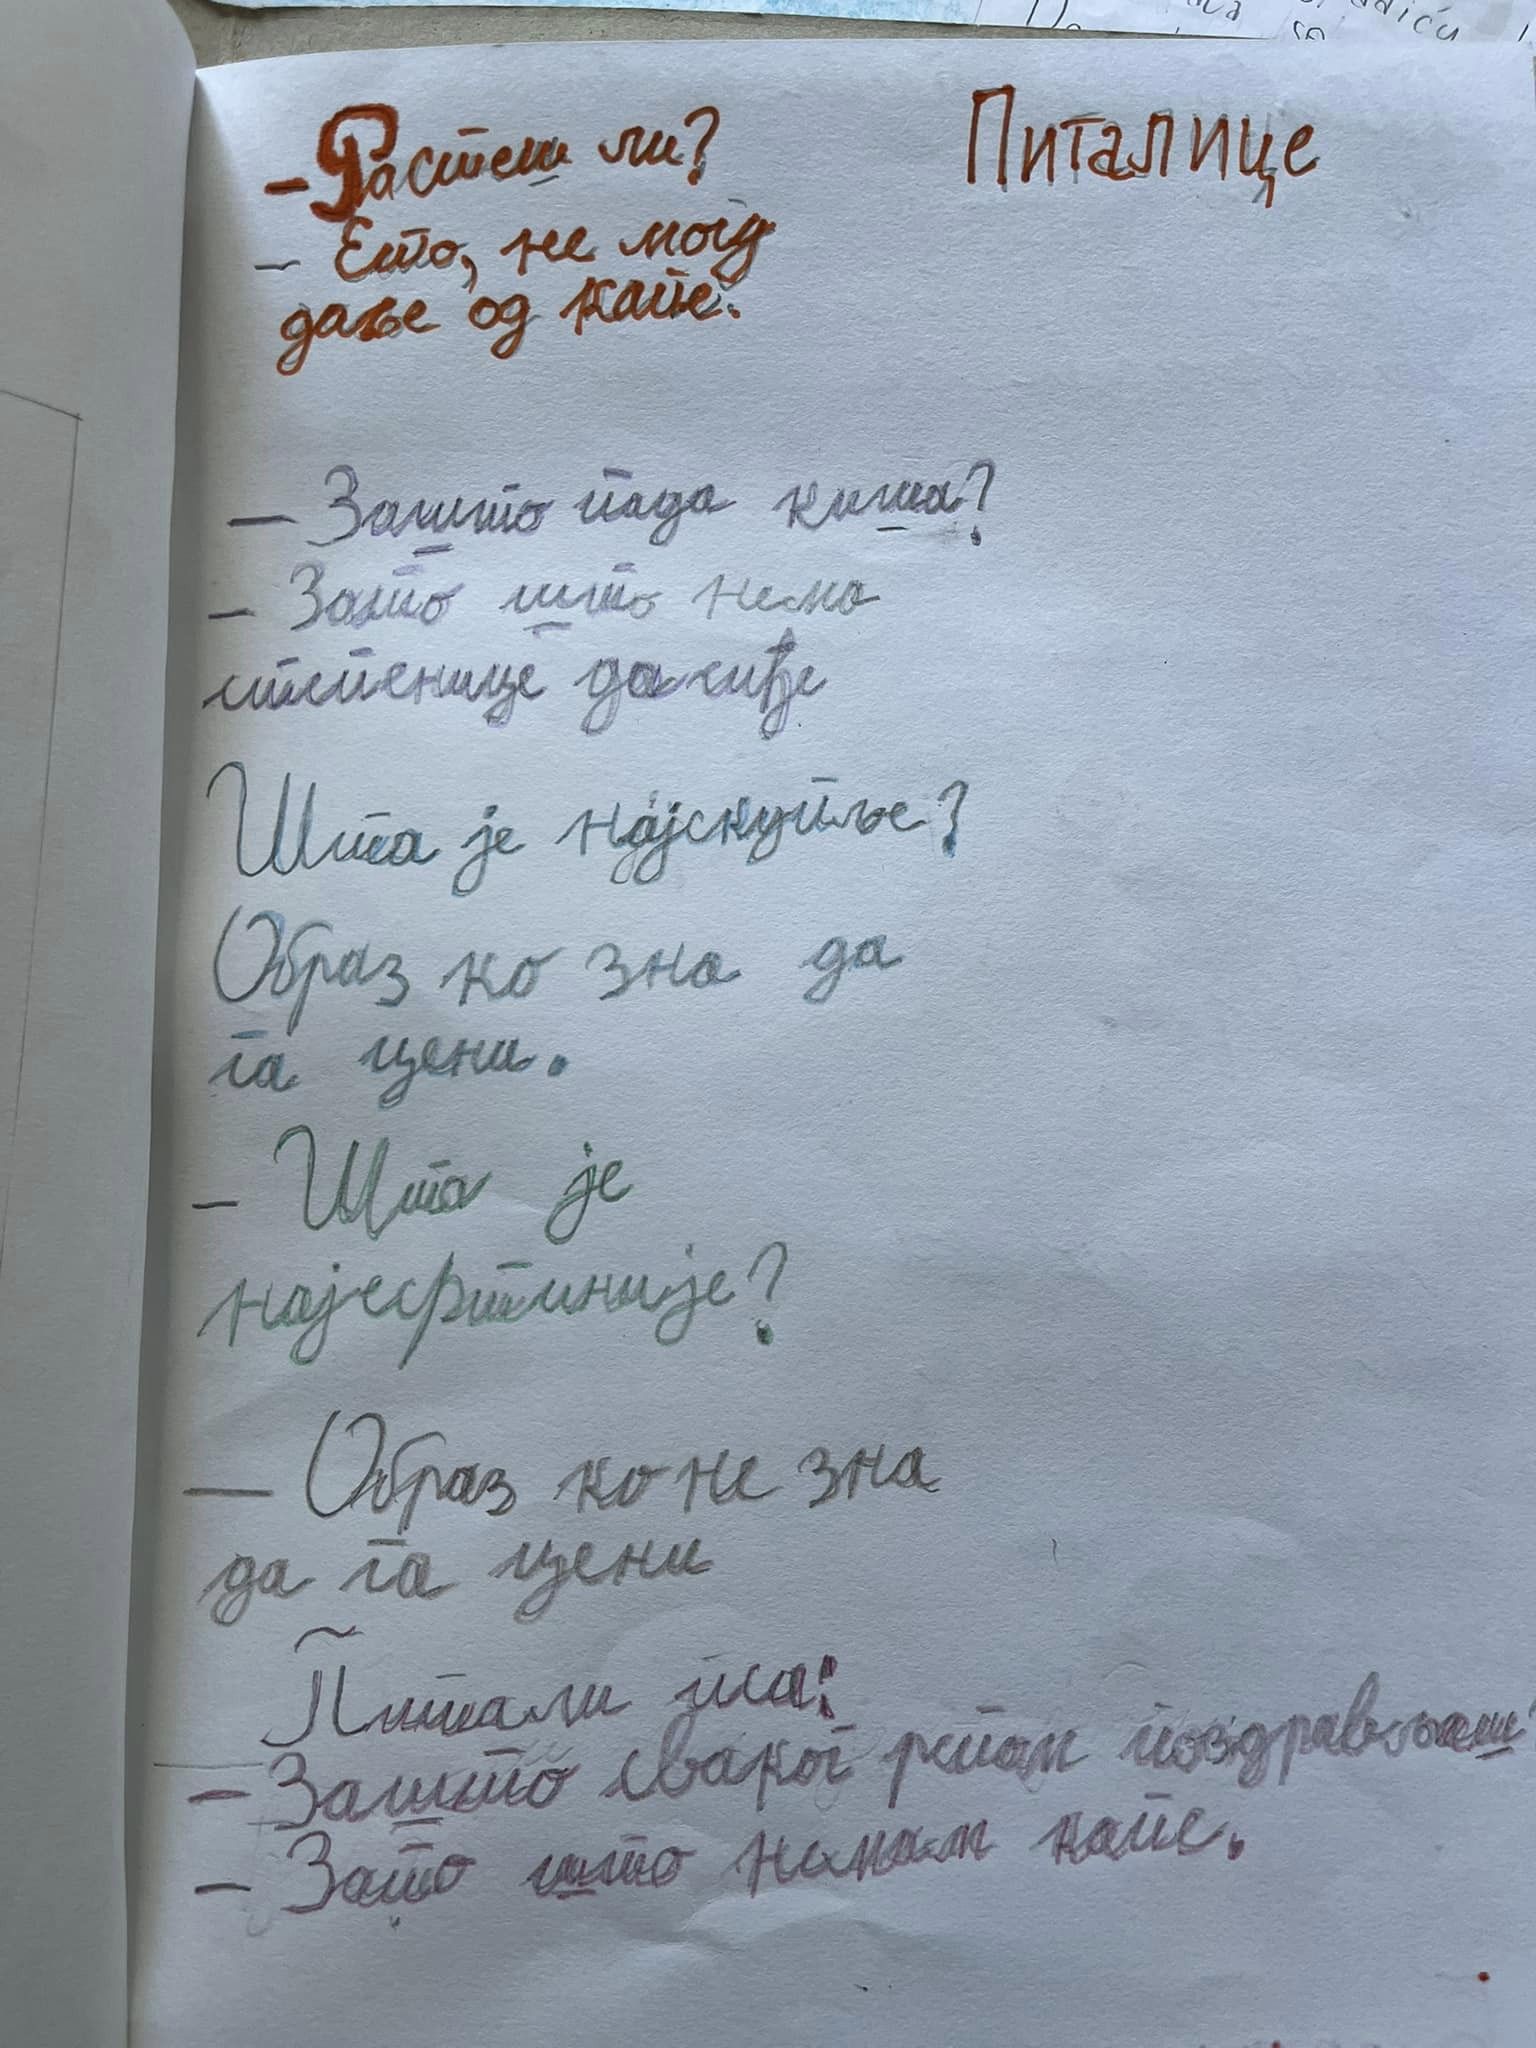 Питалице
- Растеш ли?
- Ето, не могу
даље од капе.
- Зашто пада киша?
- Зато што нема
степенице да сиђе
Шта је најскупље?
Образ ко зна да
га цени.
- Шта је
најефтиније?
- Образ ко не зна
да га цени
Питали пса:
- Зашто сваког репом поздрављаш?
- Зато што немам капе.